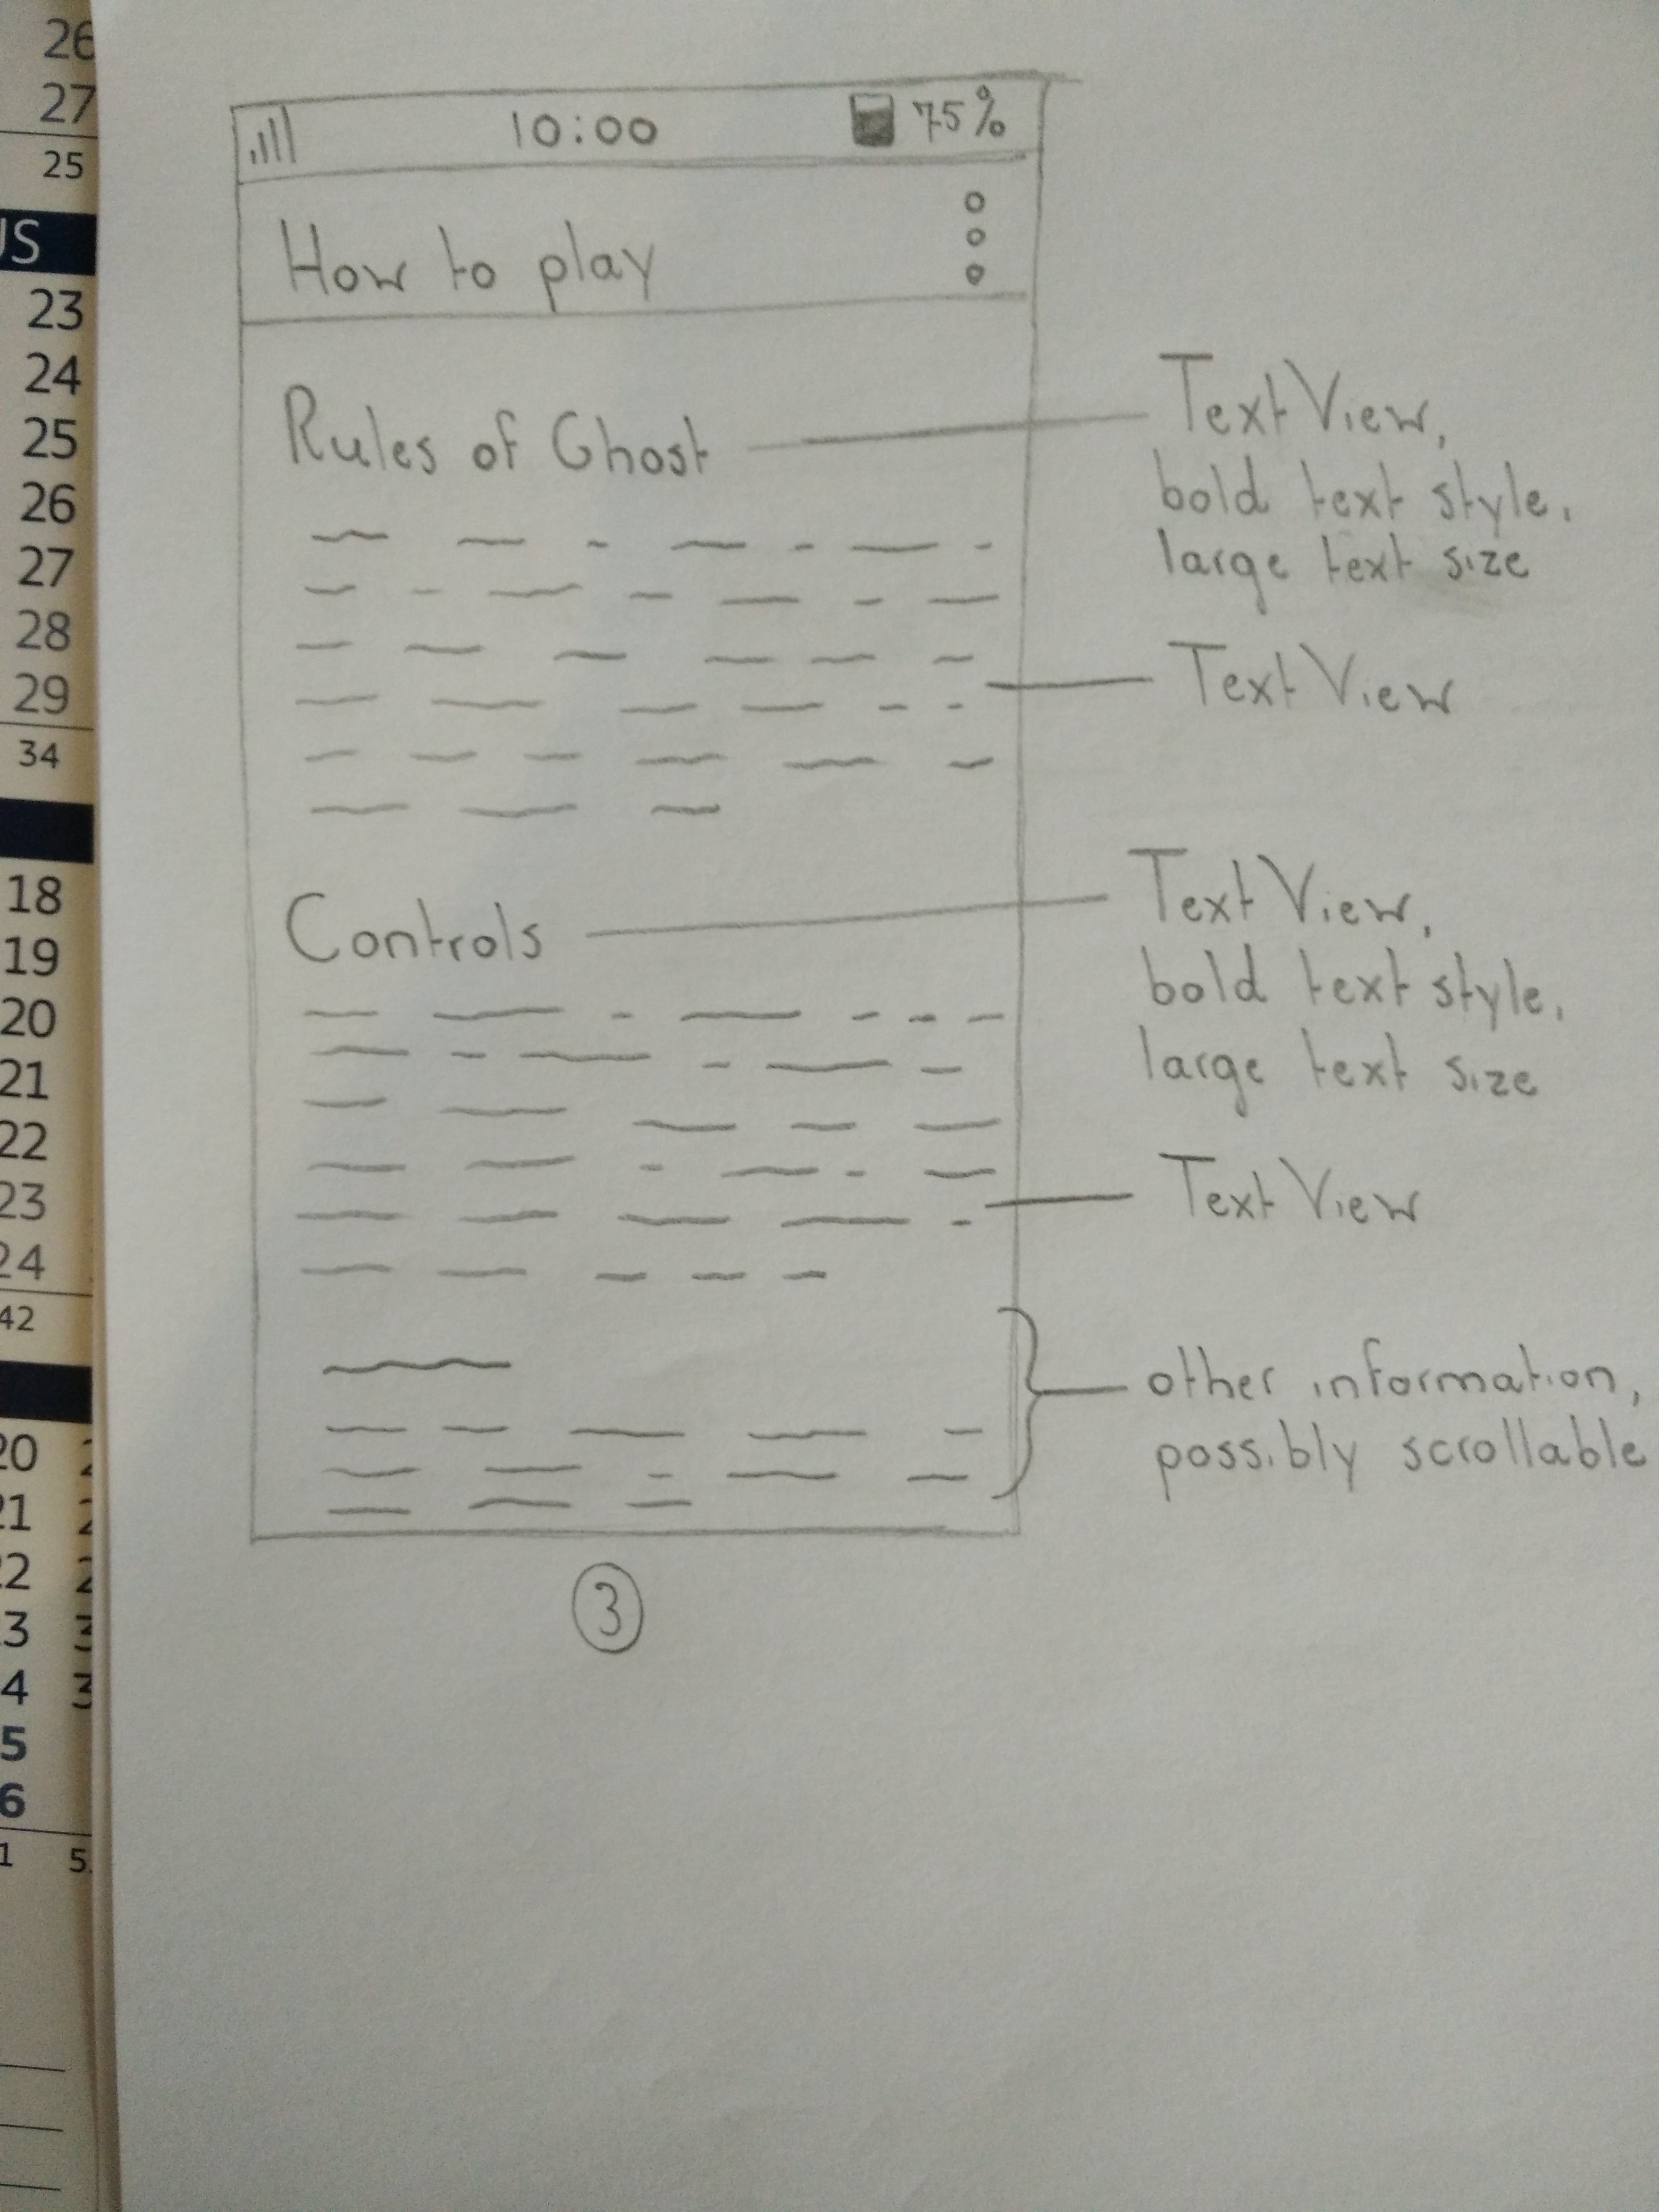 26
27
25
US
23
24
25
26
27
28
29
34
18
19
20
21
22
23
24
42
20
21
22
3
4
5
6
1 5
10:00 75%
How to play
Rules of Ghost
Text View,
bold text style,
large text size
Text View
Controls
Text View,
bold text style,
large text size
Text View
other information,
possibly scrollable
3